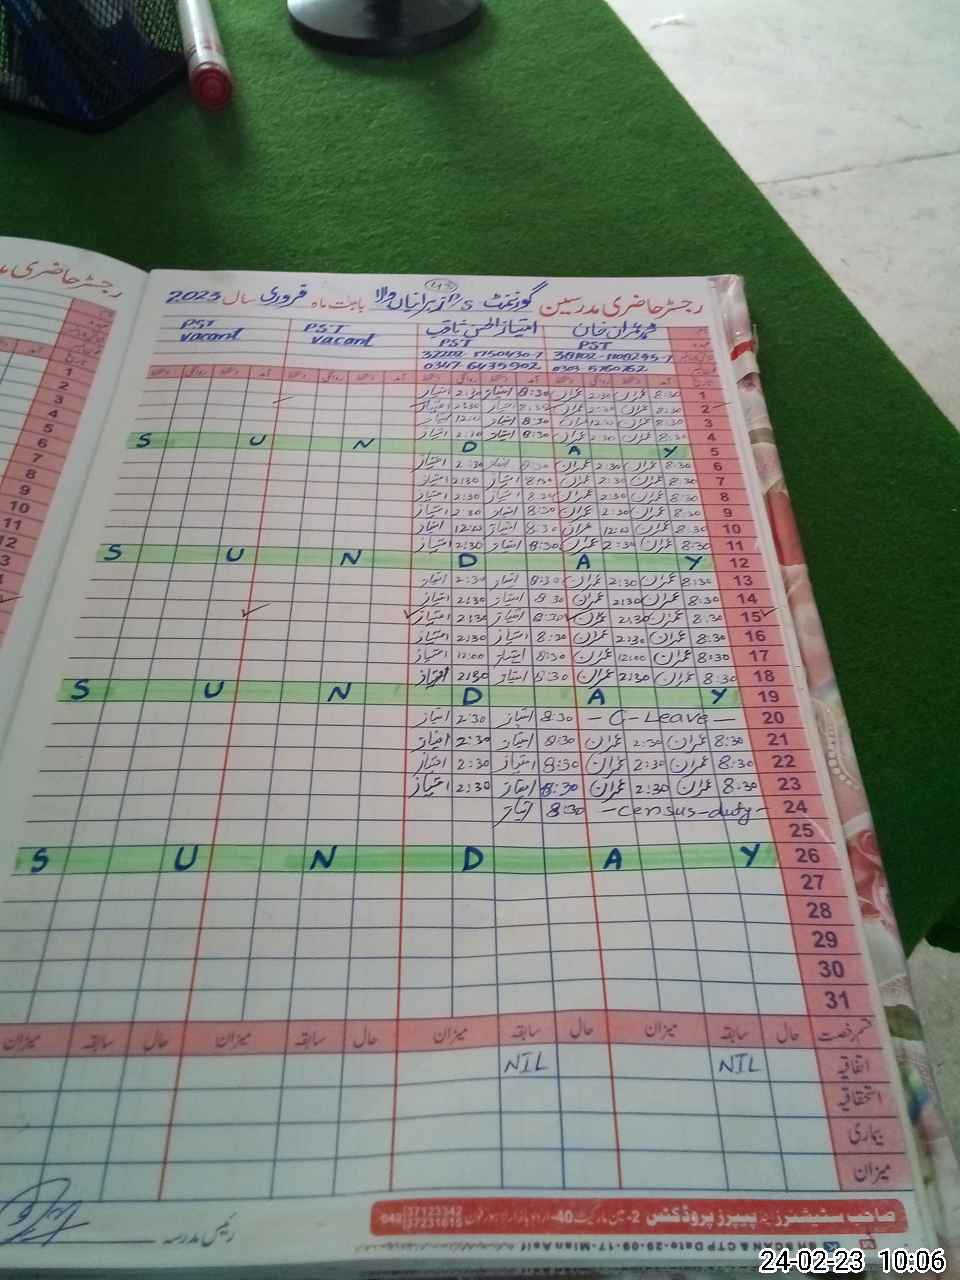 رجسٹر حاضری مدرسین گورنمنٹ P/S بابت ماہ فروری سال 2023
محمد عمران خان امتیاز الحسن ثاقب PST PST
PST PST vacant vacant
0347-6439902
آمد دستخط روانگی دستخط آمد دستخط روانگی دستخط آمد دستخط روانگی دستخط آمد دستخط روانگی دستخط تاریخ
1 8:30 عمران 2:30 عمران 8:30 امتیاز 2:30 امتیاز
2 8:30 عمران 2:30 عمران 8:30 امتیاز 2:30 امتیاز
3 8:30 عمران 12:00 عمران 8:30 امتیاز 12:00 امتیاز
4 8:30 عمران 2:30 عمران 8:30 امتیاز 2:30 امتیاز
S U N D A Y 5
6 8:30 عمران 2:30 عمران 8:30 امتیاز 2:30 امتیاز
7 8:30 عمران 2:30 عمران 8:30 امتیاز 2:30 امتیاز
8 8:30 عمران 2:30 عمران 8:30 امتیاز 2:30 امتیاز
9 8:30 عمران 2:30 عمران 8:30 امتیاز 2:30 امتیاز
10 8:30 عمران 12:00 عمران 8:30 امتیاز 12:00 امتیاز
11 8:30 عمران 2:30 عمران 8:30 امتیاز 2:30 امتیاز
S U N D A Y 12
13 8:30 عمران 2:30 عمران 8:30 امتیاز 2:30 امتیاز
14 8:30 عمران 2:30 عمران 8:30 امتیاز 2:30 امتیاز
15 8:30 عمران 2:30 عمران 8:30 امتیاز 2:30 امتیاز
16 8:30 عمران 2:30 عمران 8:30 امتیاز 2:30 امتیاز
17 8:30 عمران 12:00 عمران 8:30 امتیاز 12:00 امتیاز
18 8:30 عمران 2:30 عمران 8:30 امتیاز 2:30 امتیاز
S U N D A Y 19
20 – C-Leave – 8:30 امتیاز 2:30 امتیاز
21 8:30 عمران 2:30 عمران 8:30 امتیاز 2:30 امتیاز
22 8:30 عمران 2:30 عمران 8:30 امتیاز 2:30 امتیاز
23 8:30 عمران 2:30 عمران 8:30 امتیاز 2:30 امتیاز
24 – census-duty – 8:30 امتیاز
25
S U N D A Y 26
27
28
29
30
31
قسم رخصت حال سابقہ میزان حال سابقہ میزان حال سابقہ میزان حال سابقہ میزان
اتفاقیہ NIL NIL
استحقاقیہ
بیماری
میزان
رئیس مدرسہ
صاحب سٹیشنرز پیپرز پروڈکٹس 2-مین مارکیٹ 40-اردو بازار لاہور فون 042 37123342 37231615
رجسٹر حاضری
1
2
3
4
5
6
7
8
9
10
11
12
24-02-23 10:06